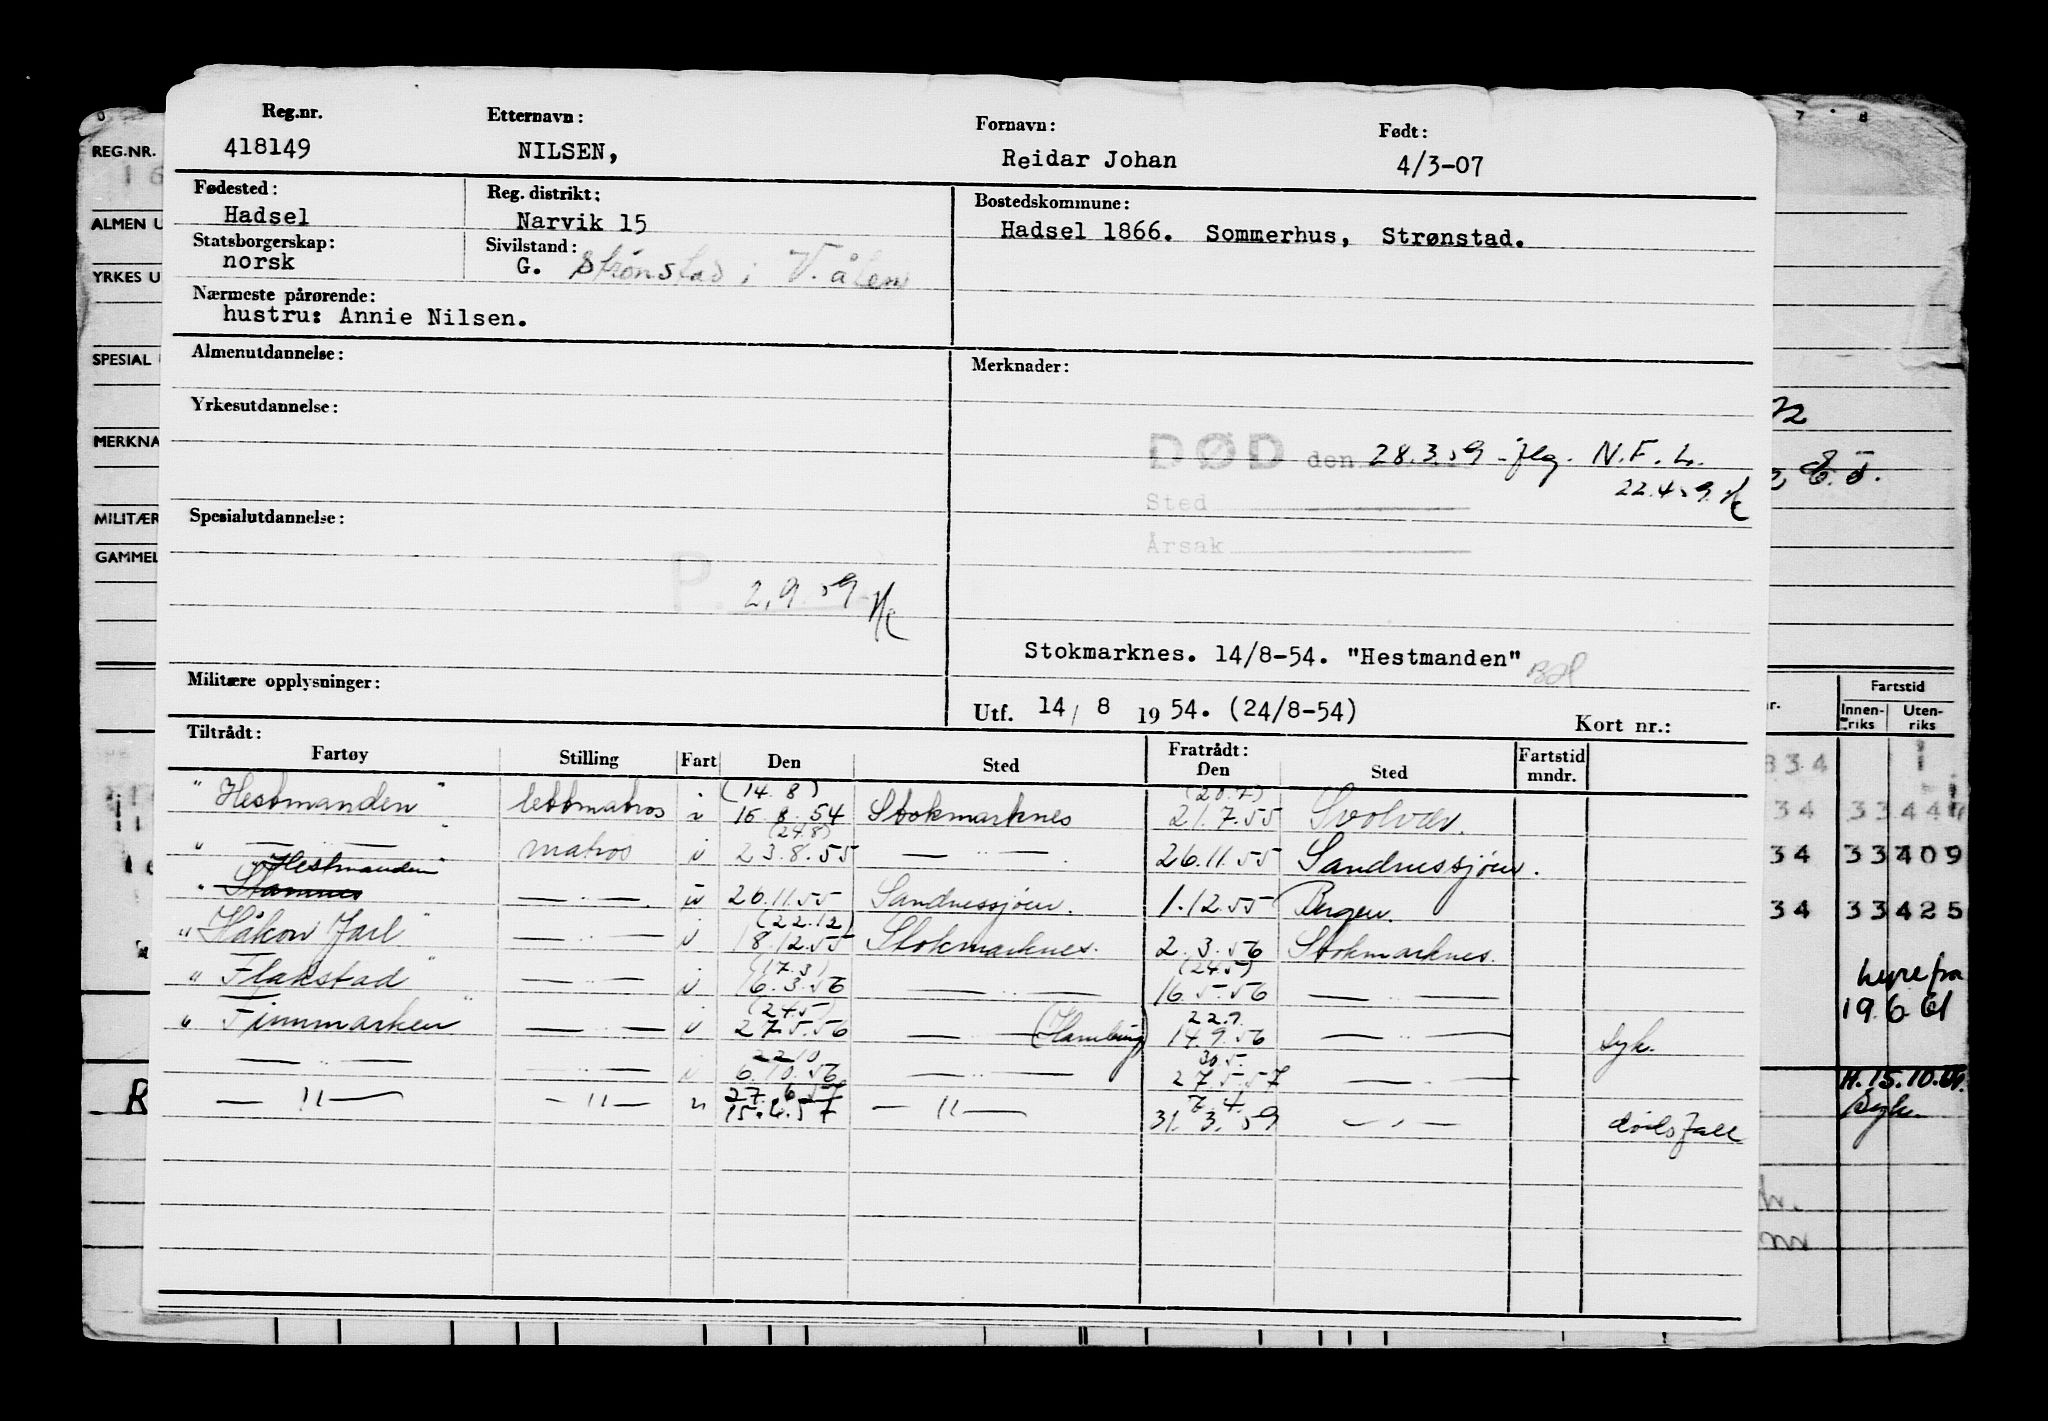 Reg.nr. Etternavn: Fornavn: Født:
418149 NILSEN, Reidar Johan 4/3-07
Fødested: Reg. distrikt: Bostedskommune:
Hadsel Narvik 15 Hadsel 1866. Sommerhus, Strønstad.
Statsborgerskap: Sivilstand:
norsk G. Strønstad i V.ålen
Nærmeste pårørende:
hustru: Annie Nilsen.
Almenutdannelse: Merknader:
Yrkesutdannelse:
DØD den 28.3.59 - jflg. N.F.L.
22.4.59
Sted
Spesialutdannelse:
Årsak
P. 2.9.59
Stokmarknes. 14/8-54. "Hestmanden"
Militære opplysninger:
Utf. 14/ 8 1954. (24/8-54) Kort nr.:
Tiltrådt: Fratrådt:
Fartøy Stilling Fart Den Sted Den Sted Fartstid mndr.
(14.8) (20.7)
"Hestmanden" lettmatros i 16.8.54 Stokmarknes 21.7.55 Svolvær.
(24.8)
" — " — " matros i 23.8.55 — " — . 26.11.55 Sandnessjøen.
"Hestmanden"
Stamnes — " — . u 26.11.55 Sandnessjøen. 1.12.55 Bergen.
(22.12)
"Håkon Jarl" — " — i 18.12.55 Stokmarknes. 2.3.56 Stokmarknes.
(17.3) (24.5)
"Flakstad" — " — i 16.3.56 — " — 16.5.56 — " —
(24.5) 22.9
"Finnmarken" — " — i 27.5.56 — " — (Hamburg) 14.9.56 — " — syk.
22.10 30.5.
— " — — " — i 6.10.56 — " — 27.5.57 — " —
27.6.57 7.4.
— " — — " — u 15.6.57 — " — 31.3.59 — " — dødsfall
REG.NR.
ALMEN U
YRKES U
SPESIAL
MERKNA
MILITÆR
GAMMEL
7 8
Fartstid
Innenriks Utenriks
834
34 3344
34 33409
34 33425
hyre fra
19.6.61
H. 15.10.
Syk.